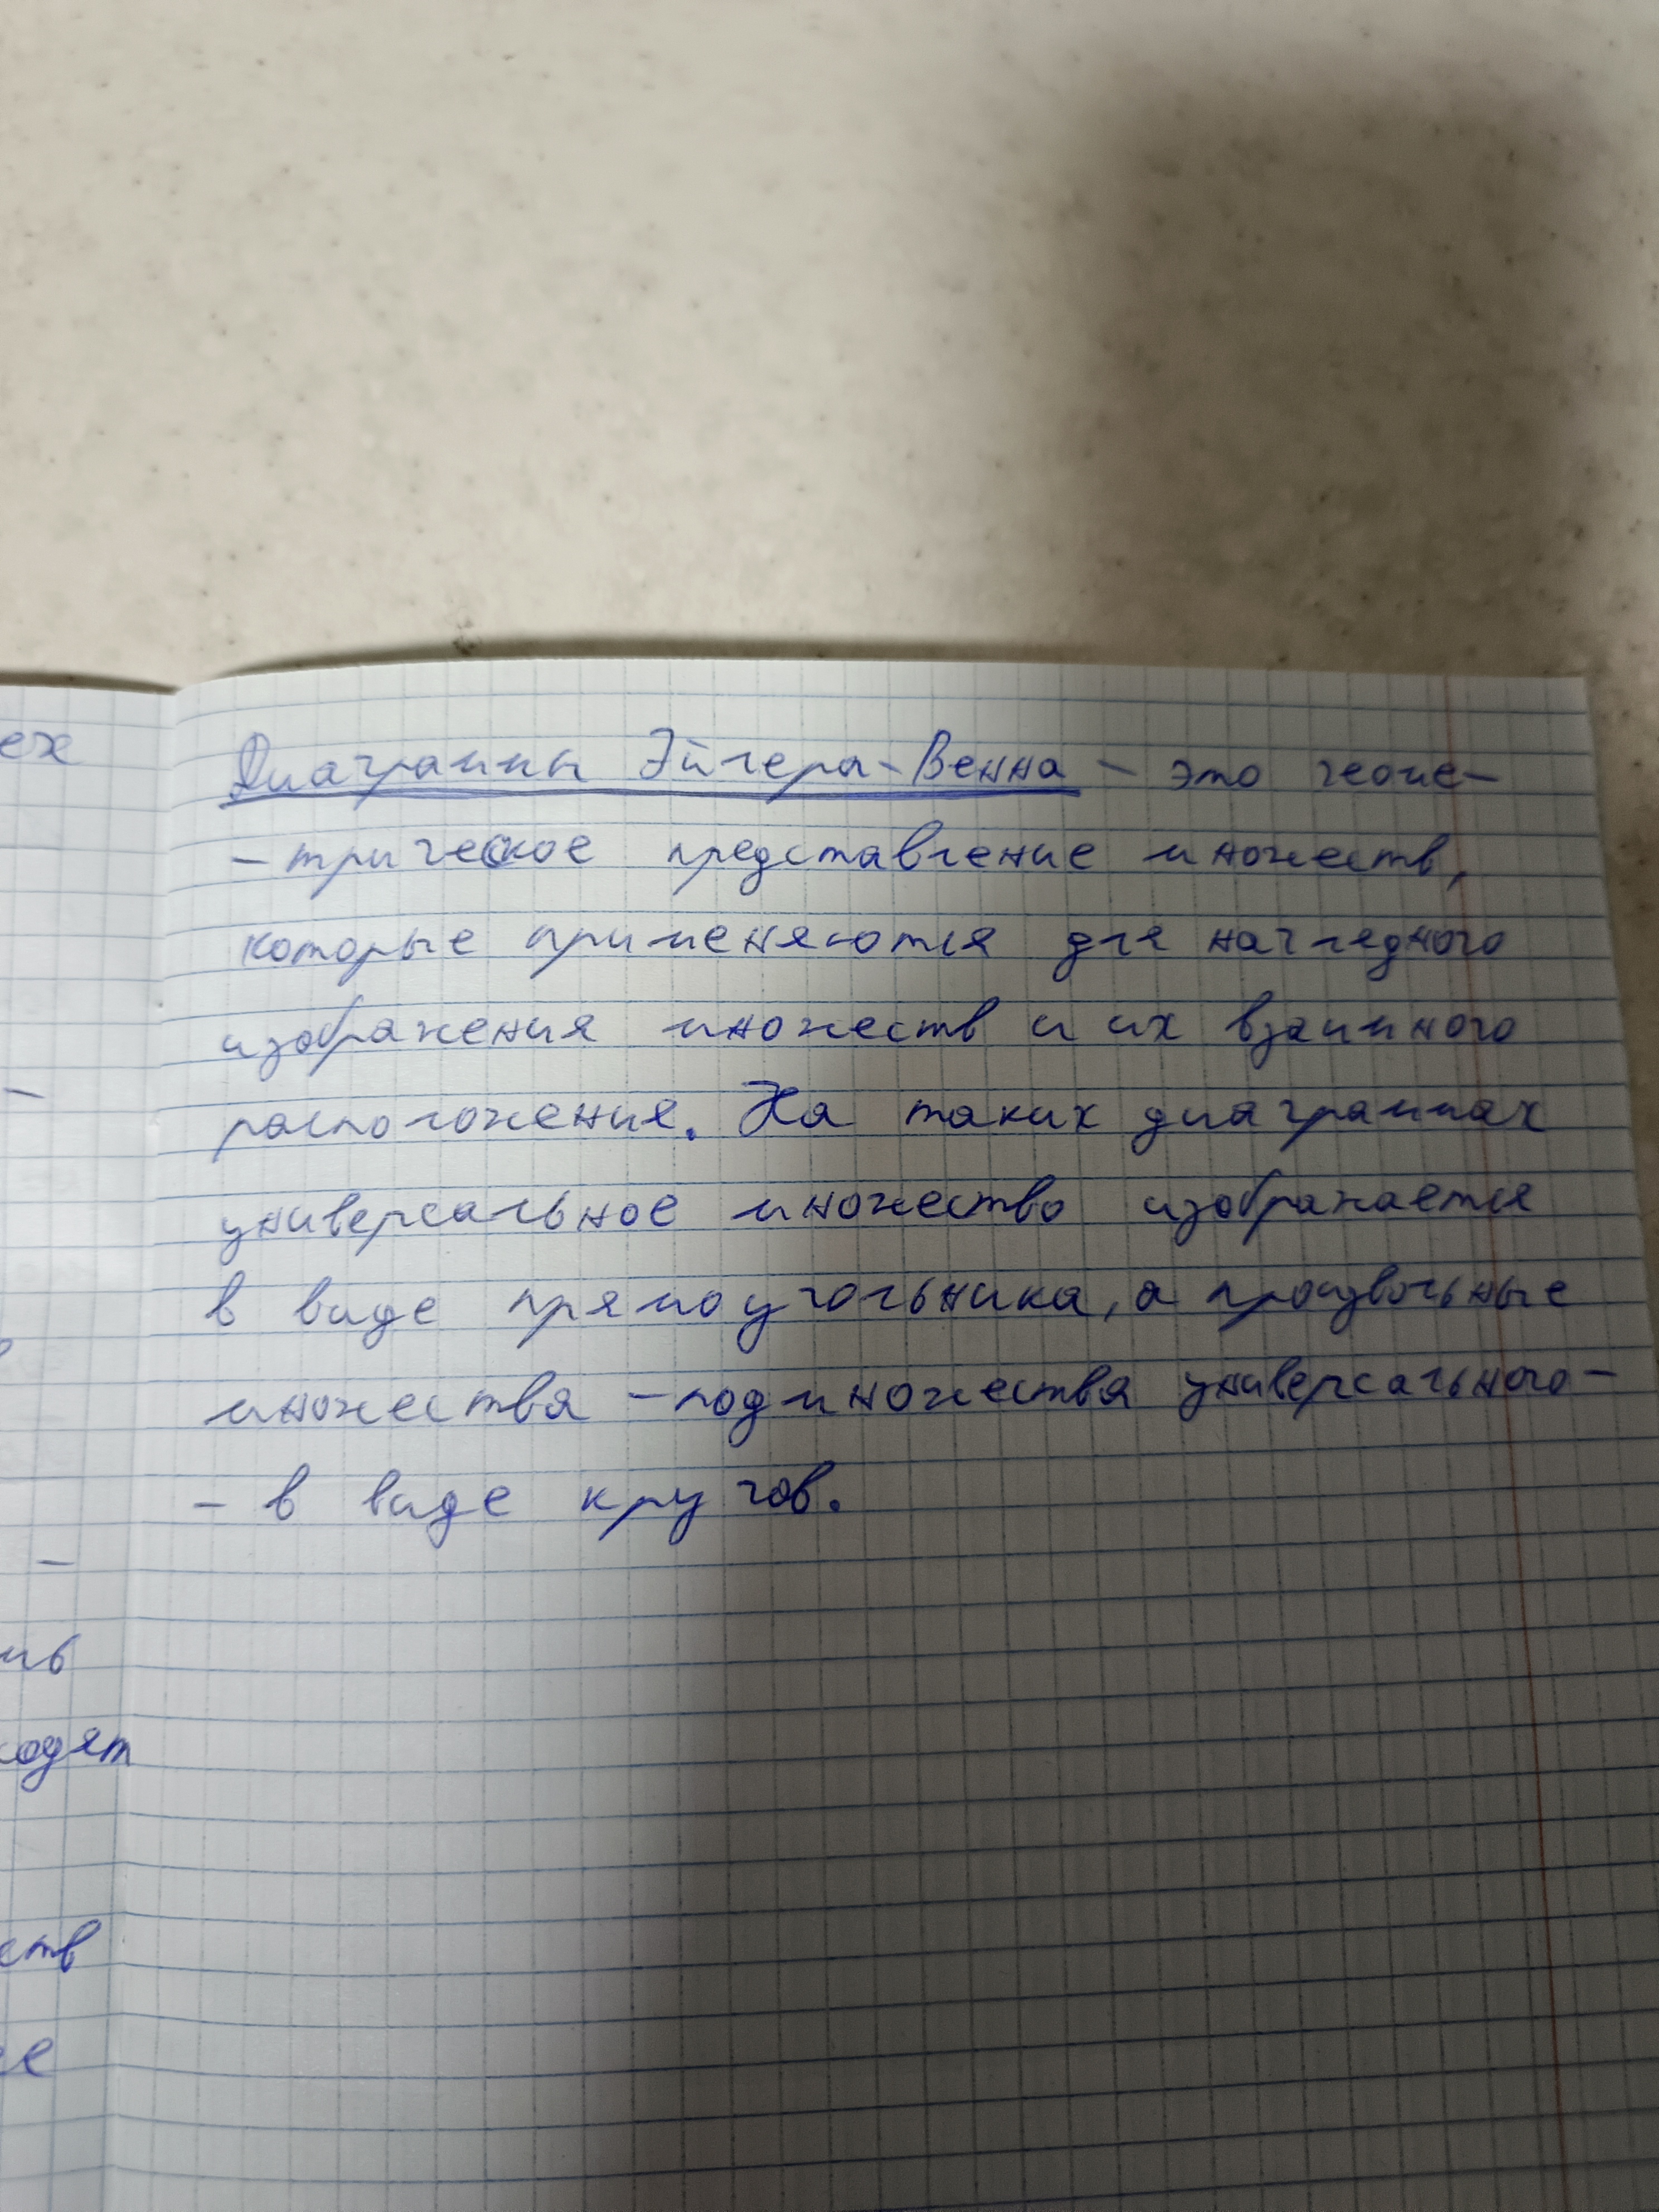 ех
Диаграммы Эйлера-Венна - это геоме-
- трическое представление множеств,
которые применяются для наглядного
изображения множеств и их взаимного
расположения. На таких диаграммах
универсальное множество изображается
в виде прямоугольника, а произвольные
множества - подмножества универсального -
- в виде кругов.
ходят
ств